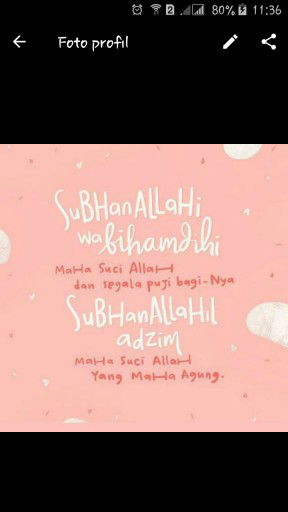 80% 11:36
Foto profil
SuBHanALLaHi
wa bihamdihi
MaHa Suci ALLaH
dan segala puji bagi-Nya
SuBHanALLaHil
adzim
MaHa Suci ALLaH
Yang MaHa Agung.